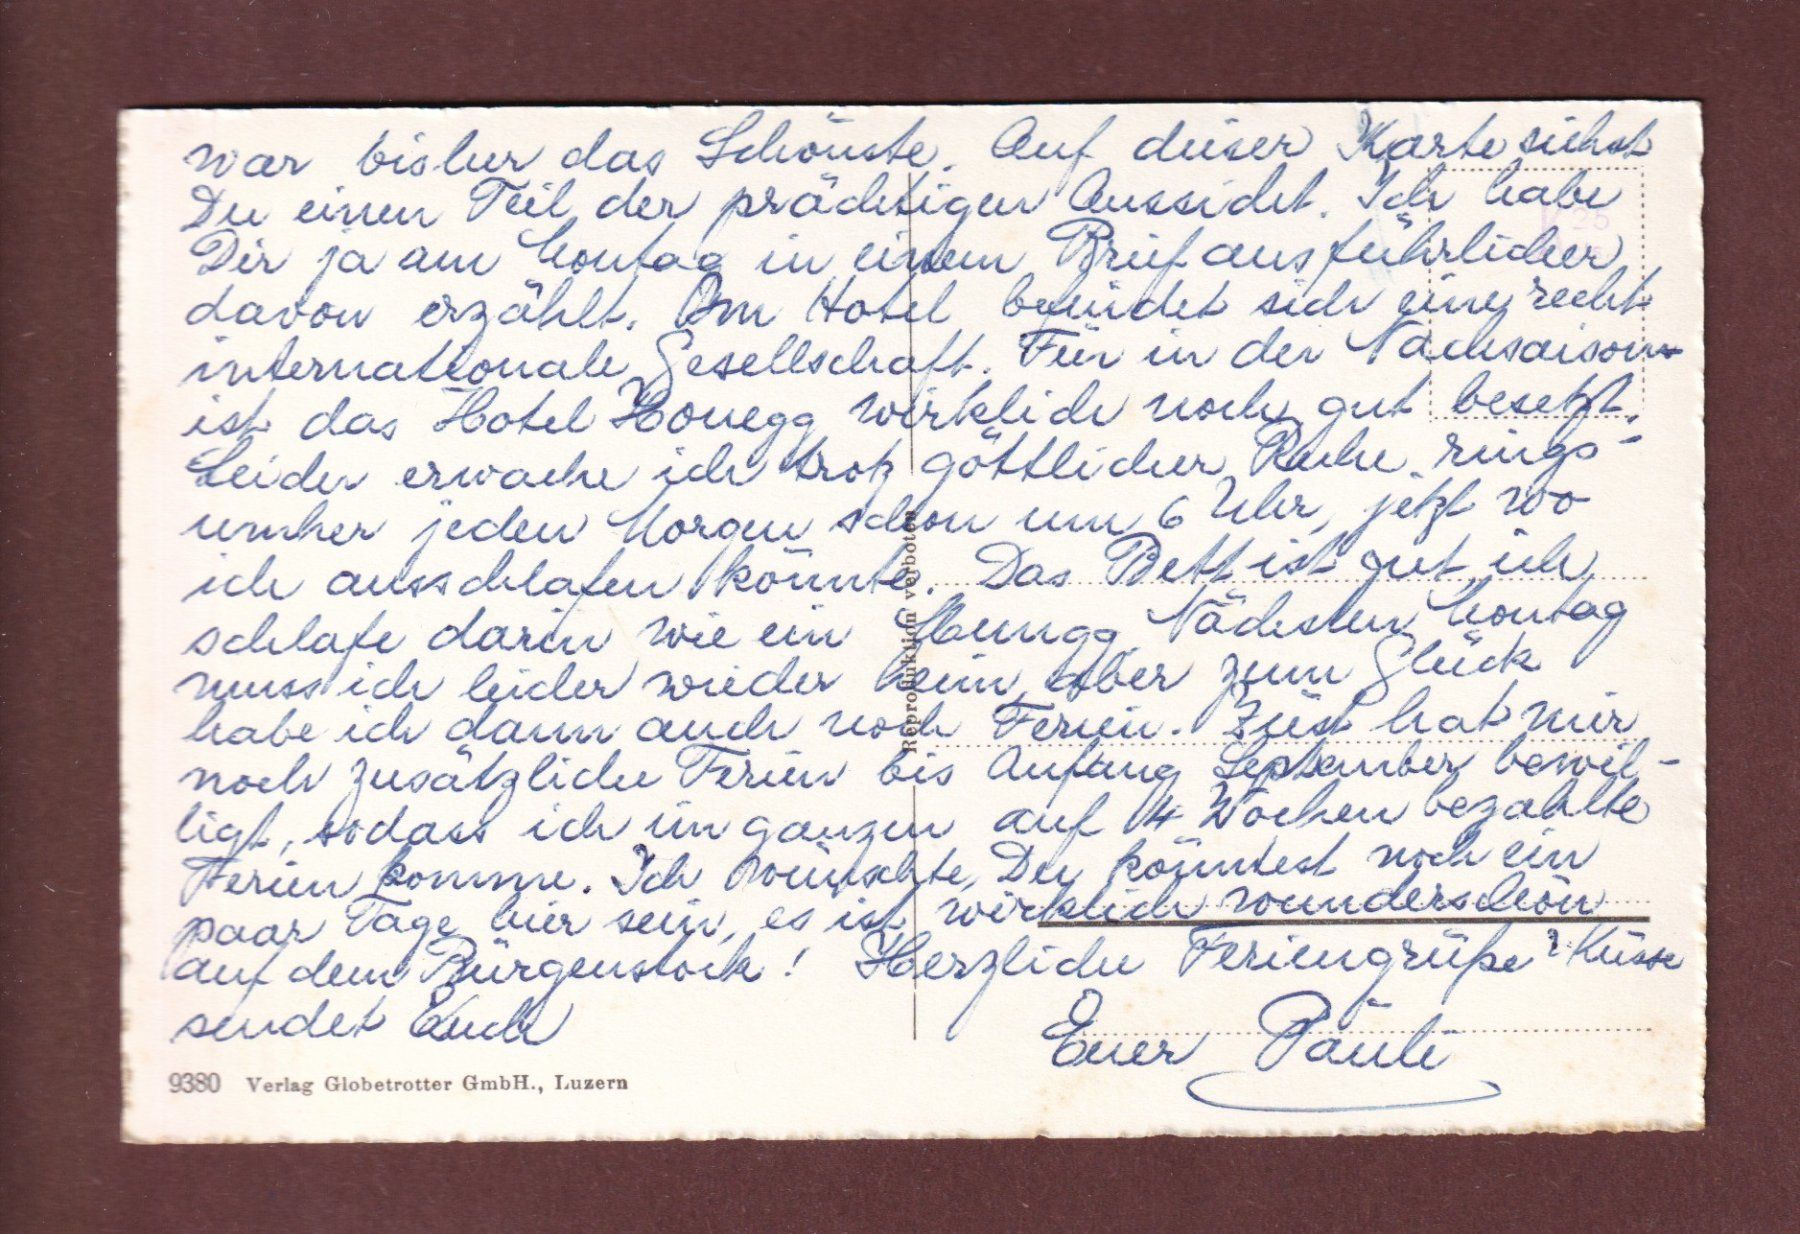 war bisher das Schönste. Auf dieser Karte siehst
Du einen Teil der prächtigen Aussicht. Ich habe
Dir ja am Montag in einem Brief ausführlicher
davon erzählt. Im Hotel befindet sich eine recht
internationale Gesellschaft. Für in der Nachsaison
ist das Hotel Honegg wirklich noch gut besetzt.
Leider erwache ich trotz göttlicher Ruhe rings-
umher jeden Morgen schon um 6 Uhr, jetzt wo
ich ausschlafen könnte. Das Bett ist gut, ich
schlafe darin wie ein Mungg. Nächsten Montag
muss ich leider wieder heim, aber zum Glück
habe ich dann auch noch Ferien. Züst hat mir
noch zusätzliche Ferien bis Anfang September bewil-
ligt, sodass ich im ganzen auf 4 Wochen bezahlte
Ferien komme. Ich wünschte, Du könntest noch ein
paar Tage hier sein, es ist wirklich wunderschön
auf dem Bürgenstock! Herzliche Feriengrüße & Küsse
sendet Euch
Euer Pauli
Reproduktion verboten
9380 Verlag Globetrotter GmbH., Luzern